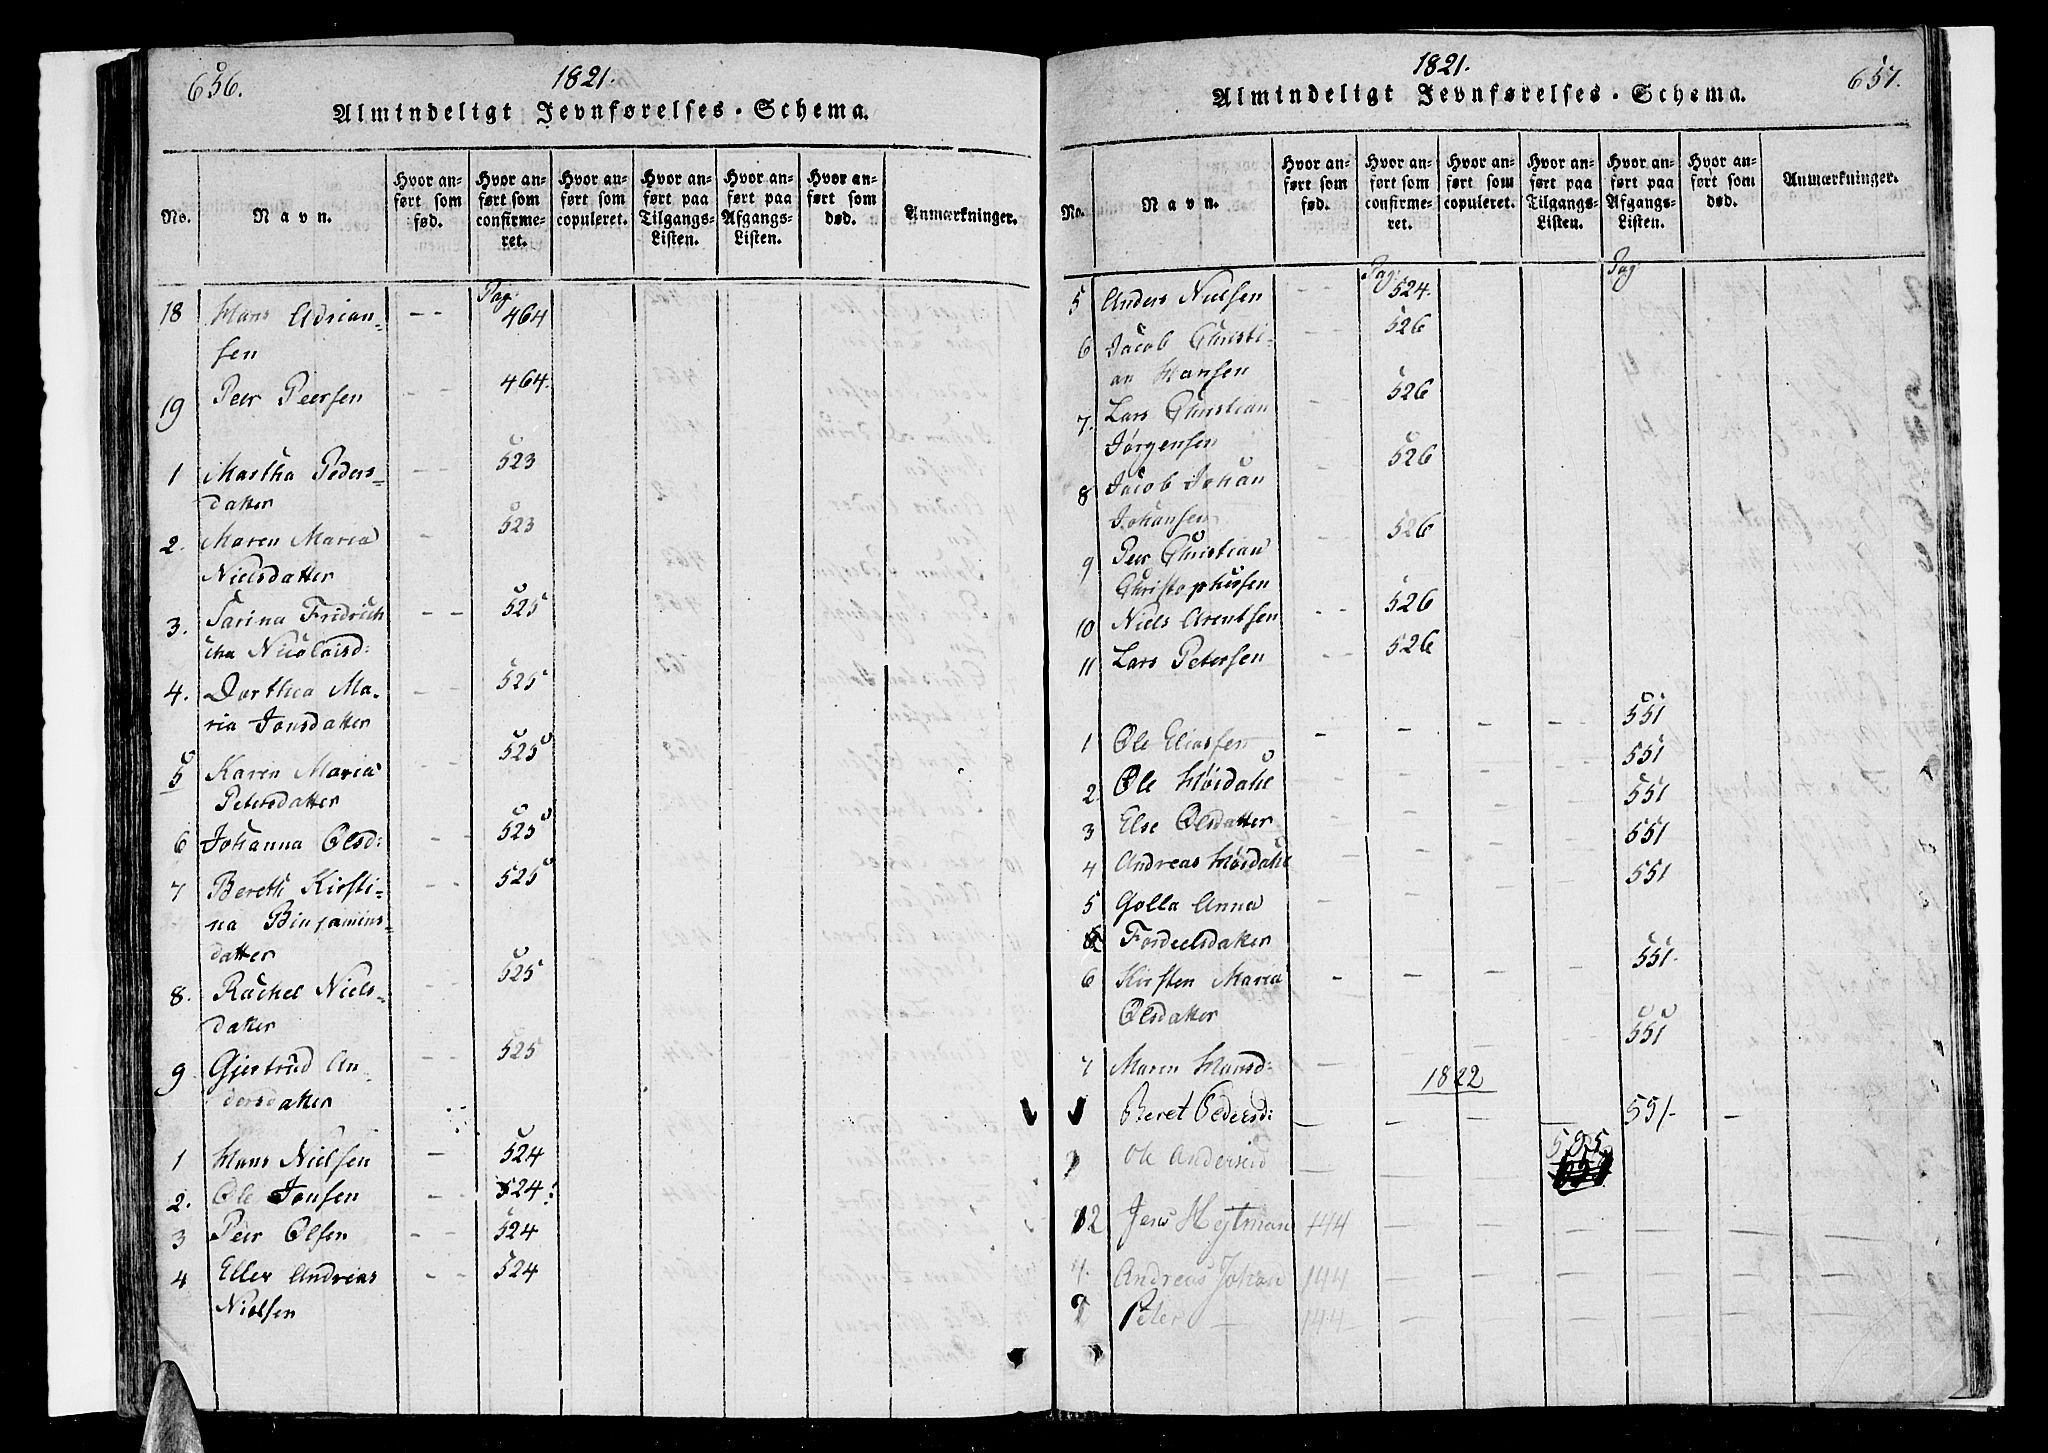 656.
1821.
Almindeligt Jevnførelses-Schema.
No. Navn. Hvor anført som fød. Hvor anført som confirmeret. Hvor anført som copuleret. Hvor anført paa Tilgangs-Listen. Hvor anført paa Afgangs-Listen. Hvor anført som død. Anmærkninger.
Pag:
18 Hans Adrian= - - 464
sen
19 Peer Peersen - - 464.
1 Martha Peders= - - 523
datter
2. Maren Maria - 523
Nielsdatter
3. Sarina Fridrich - - 525
cha Nicolaisd:
4. Dorthea Ma= - - 525
ria Jonsdatter
5 Karen Maria - - 525
Petersdatter
6 Johanna Olsd: - - 525
7 Bereth Kirsti= - - 525
na Binjamins=
datter
8. Rachel Niels= - - 525
datter
9 Gjertrud An= - - 525
dersdatter
1 Hans Nielsen - - 524
2. Ole Jonsen - - 524:
3 Peer Olsen - - 524
4 Eller Andreas - - 524
Nielsen
1821.
657.
Almindeligt Jevnførelses-Schema.
No. Navn. Hvor anført som fød. Hvor anført som confirmeret. Hvor anført som copuleret. Hvor anført paa Tilgangs-Listen. Hvor anført paa Afgangs-Listen. Hvor anført som død. Anmærkninger.
Pag: Pag:
5 Anders Nielsen - - 524.
6 Jacob Christi= - - 526
an Hansen
7. Lars Christian - - 526
Jørgensen
8 Jacob Johan - 526
Johansen
9 Peer Christian - 526
Christophersen
10 Niels Arentsen - - 526
11 Lars Petersen - - 526
1 Ole Eliassen - - - - - 551
2. Ole Høidahl - - - - 551
3 Else Olsdatter - - - - 551
4 Andreas Høidahl - - - - 551
5 Golla Anna - - - - 551
Fordeelsdatter
6 Kirsten Maria - - - - 551.
Olsdatter
7 Maren Hansd: - - - - 551
1822
1 Beret Pedersd: - - - - 591- -
Ole Andersen - - - 595
12 Jens Hejtman 144 - - - - - -
4. Andreas Johan 144 - - - - - -
Peter - 144 - - - - - -